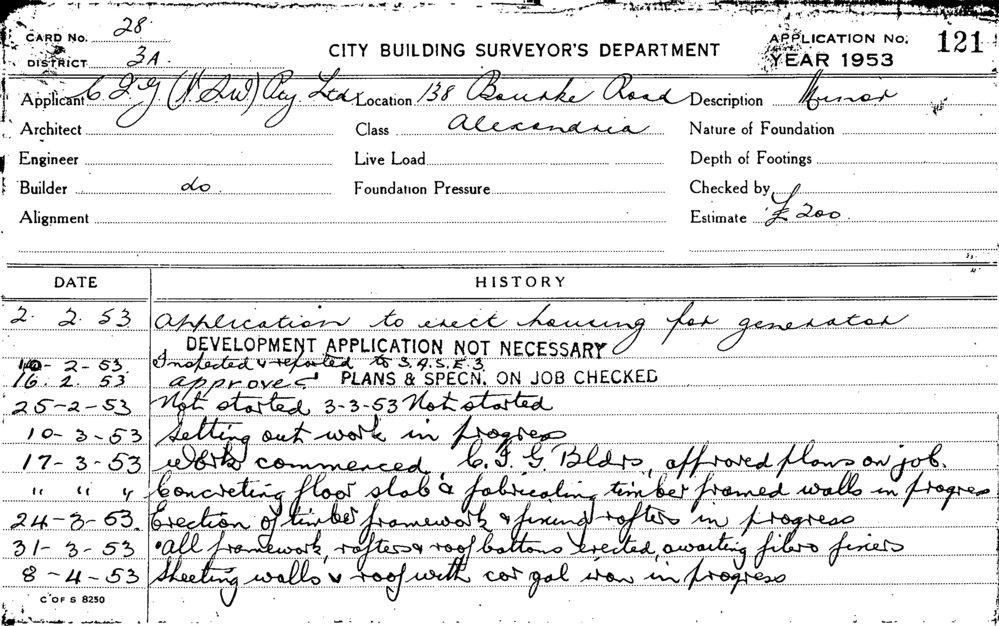 CARD No. 28
DISTRICT 3A.
CITY BUILDING SURVEYOR'S DEPARTMENT
APPLICATION No. 121
YEAR 1953
Applicant C.I.G (N.S.W) Pty. Ltd. Location 138 Bourke Road Description Minor
Architect Class Alexandria Nature of Foundation
Engineer Live Load Depth of Footings
Builder do Foundation Pressure Checked by
Alignment Estimate £200
DATE HISTORY
2. 2. 53 Application to erect housing for generator
DEVELOPMENT APPLICATION NOT NECESSARY
10-2-53. Inspected & reported to
16. 2. 53 approved PLANS & SPECN. ON JOB CHECKED
25-2-53 Not started 3-3-53 Not started
10-3-53 Setting out work in progress
17-3-53 Work commenced, C.I.G. Bldrs, approved plans on job.
" " " Concreting floor slab & fabricating timber framed walls in progress
24-3-53. Erection of timber framework & fixing rafters in progress
31-3-53 All framework, rafters & roof battons erected, awaiting fibro fixers
8-4-53 Sheeting walls & roof with cor gal iron in progress
C OF S 8250